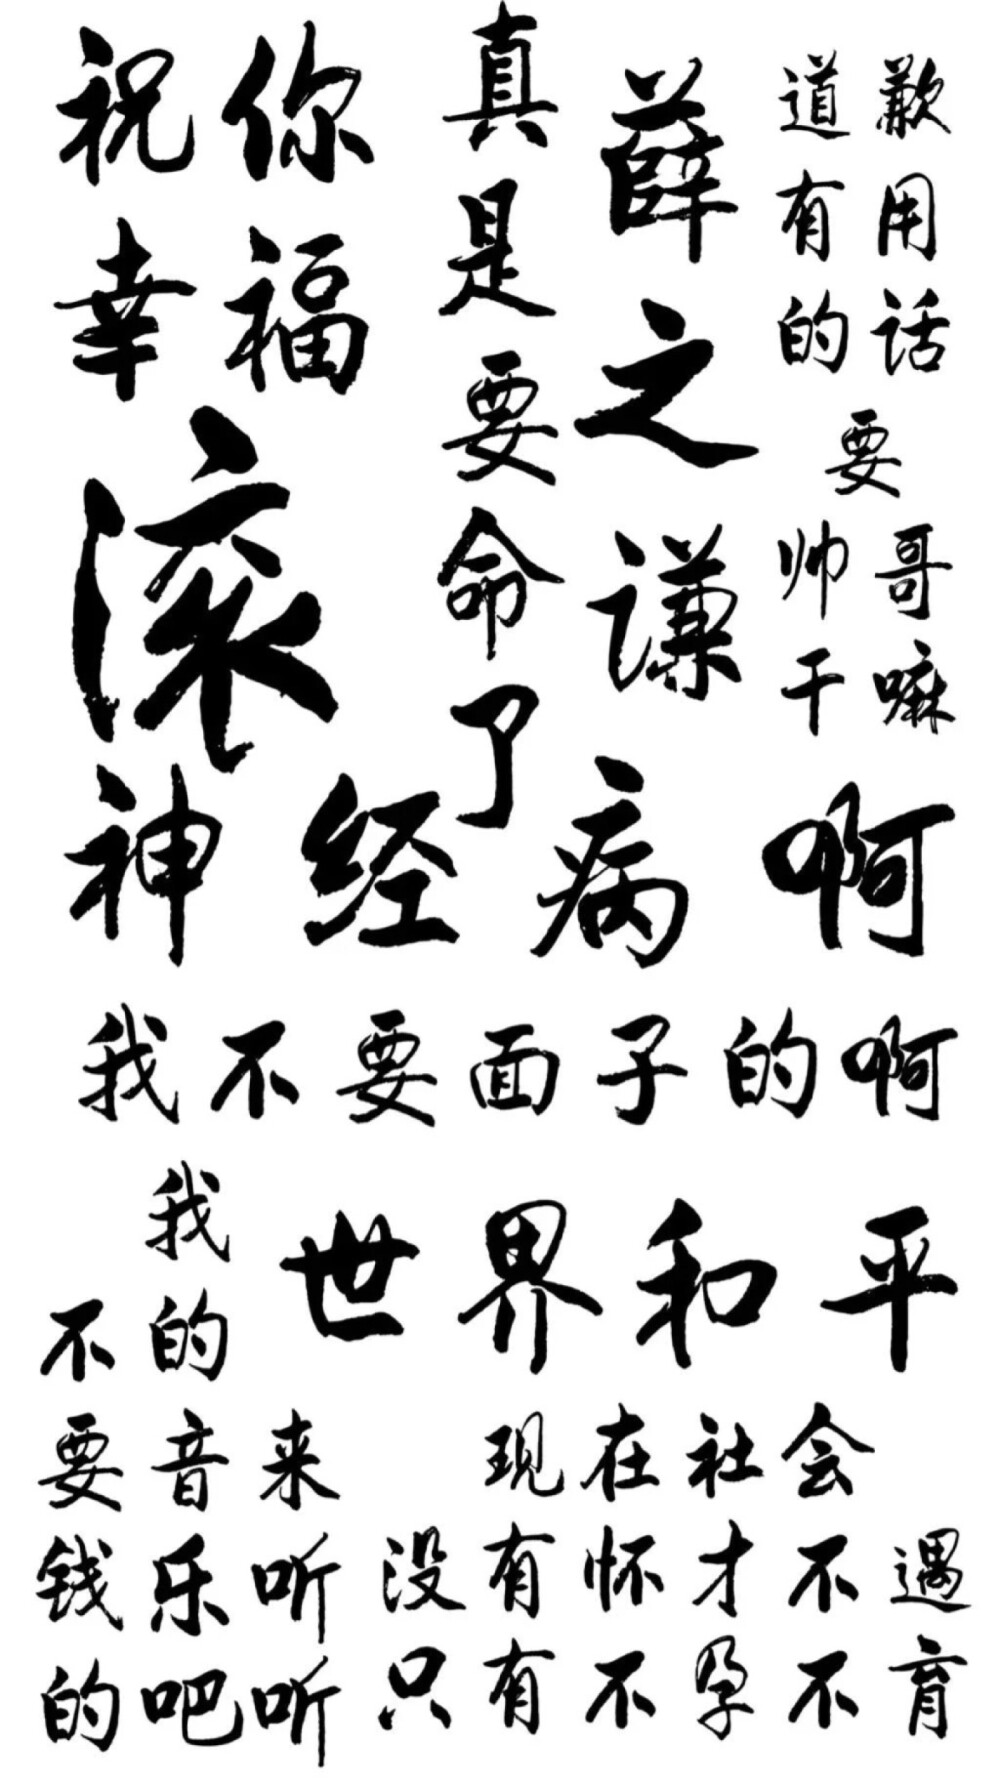 祝你
幸福
滚
真是要命了
薛之谦
道歉
有用
的话
要
帅哥
干嘛
神经病啊
我不要面子的啊
世界和平
来听听
我的音乐吧
不要钱的
现在社会
没有怀才不遇
只有不孕不育